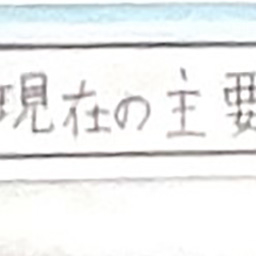 現在の主要